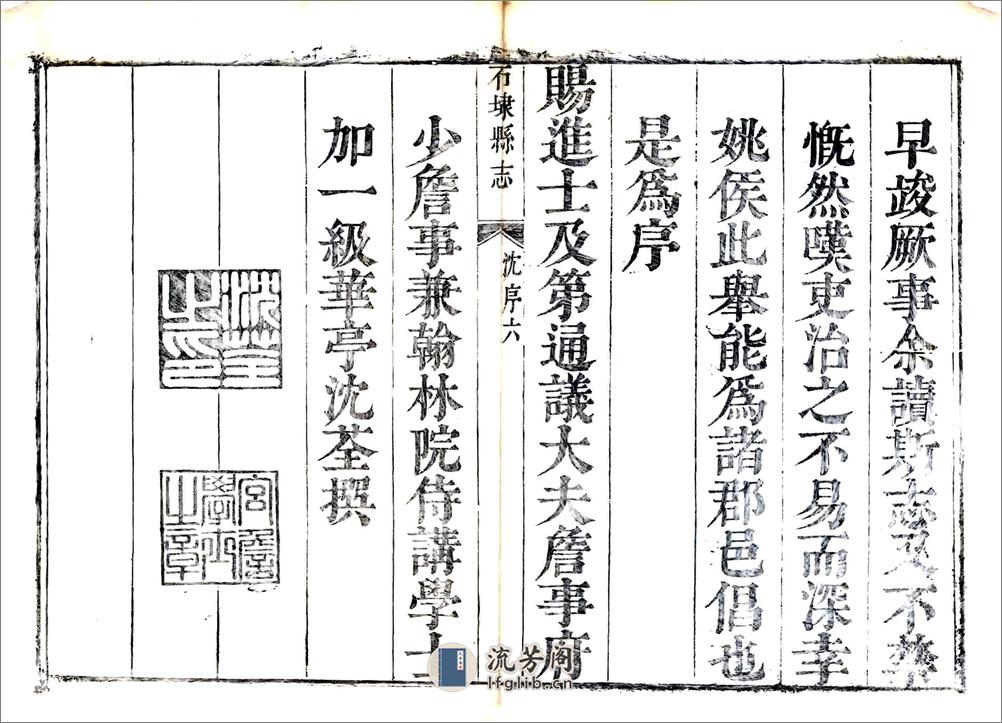 早踆厥事余讀斯志又不禁
慨然嘆吏治之不易而深幸
姚侯此舉能爲諸郡邑倡也
是爲序
賜進士及第通議大夫詹事府
石埭縣志
沈序六
少詹事兼翰林院侍講學士
加一級華亭沈荃撰
沈荃之印
宮詹學士之章
流芳阁
lfglib.cn